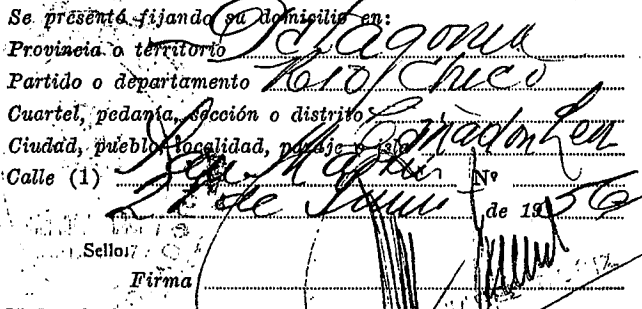 Se presentó fijando su domicilio en:
Provincia o territorio Patagonia
Partido o departamento Río Chico
Cuartel, pedanía, sección o distrito Cañadon Leon
Ciudad, pueblo, localidad, paraje o isla
Calle (1) San Martín Nº
de Junio de 1956
Sello:
Firma